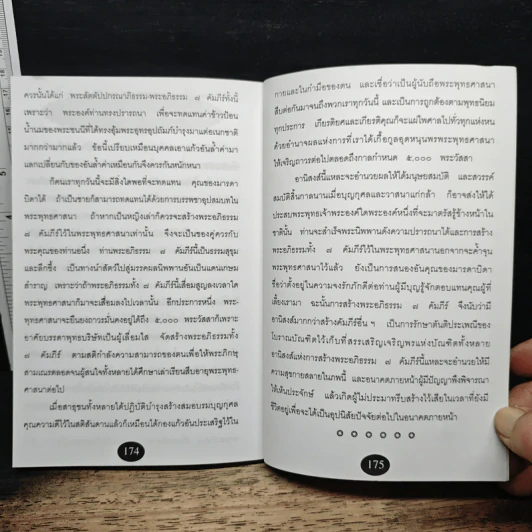 ควรนั้นได้แก่ พระสัตตัปปกรณาภิธรรม-พระอภิธรรม ๗ คัมภีร์ทั้งนี้
เพราะว่า พระองค์ท่านทรงปรารถนา เพื่อจะทดแทนค่าข้าวป้อน
น้ำนมของพระชนนีที่ได้ทรงอุ้มพระอุทรอุปถัมภ์บำรุงมาแต่อเนกชาติ
มากกว่ามากแล้ว ข้อนี้เปรียบเหมือนบุคคลเอาแก้วอันล้ำค่ามา
แลกเปลี่ยนกับของอันล้ำค่าเหมือนกันจึงควรกันหนักหนา
ก็คนเราทุกวันนี้จะมีสิ่งใดพอที่จะทดแทน คุณของมารดา
บิดาได้ ถ้าเป็นชายก็สามารถทดแทนได้ด้วยการบรรพชาอุปสมบทใน
พระพุทธศาสนา ถ้าหากเป็นหญิงเล่าก็ควรจะสร้างพระอภิธรรม
๗ คัมภีร์ไว้ในพระพุทธศาสนาเท่านั้น จึงจะเป็นของคู่ควรกับ
พระคุณของท่านอนึ่ง ท่านพระอภิธรรม ๗ คัมภีร์นี้เป็นธรรมสุขุม
และลึกซึ้ง เป็นทางนำสัตว์ไปสู่มรรคผลนิพพานอันเป็นแดนเกษม
สำราญ เพราะว่าถ้าพระอภิธรรมทั้ง ๗ คัมภีร์นี้เสื่อมสูญลงเวลาใด
พระพุทธศาสนาก็มาจะเสื่อมลงไปเวลานั้น อีกประการหนึ่ง พระ-
พุทธศาสนาจะยืนยงถาวรมั่นคงอยู่ได้ถึง ๕,๐๐๐ พระวัสสาก็เพราะ
อาศัยบรรดาพุทธบริษัทเป็นผู้เลื่อมใส จัดสร้างพระอภิธรรมทั้ง
๗ คัมภีร์ ตามสติกำลังความสามารถของตนเพื่อให้พระภิกษุ
สามเณรตลอดจนผู้สนใจทั้งหลายได้ศึกษาเล่าเรียนสืบอายุพระพุทธ-
ศาสนาต่อไป
เมื่อสาธุชนทั้งหลายได้ปฏิบัติบำรุงสร้างสมอบรมบุญกุศล
คุณความดีไว้ในสติสันดานแล้วก็เหมือนได้กองแก้วอันประเสริฐไว้ใน
174
กายและในกำมือของตน และเชื่อว่าเป็นผู้นับถือพระพุทธศาสนา
สืบต่อกันมาจนถึงพวกเราทุกวันนี้ และเป็นการถูกต้องตามพุทธนิยม
ทุกประการ เกียรติยศและเกียรติคุณก็จะแผ่ไพศาลไปทั่วทุกแห่งหน
ด้วยอำนาจผลแห่งการที่เราได้เกื้อกูลอุดหนุนพรพระพุทธศาสนา
ให้เจริญถาวรต่อไปตลอดถึงกาลกำหนด ๕,๐๐๐ พระวัสสา
อานิสงส์นี้แหละจะอำนวยผลให้ได้มนุษยสมบัติ และสวรรค์
สมบัติสิ้นกาลนานเมื่อบุญกุศลและวาสนาแก่กล้า ก็อาจส่งให้ได้
ประสบพระพุทธเจ้าพระองค์ใดพระองค์หนึ่งที่จะมาตรัสรู้ข้างหน้าใน
ชาตินั้น ท่านจะสำเร็จพระนิพพานดังความปรารถนาได้และการสร้าง
พระอภิธรรมทั้ง ๗ คัมภีร์ไว้ในพระพุทธศาสนานอกจากจะค้ำจุน
พระพุทธศาสนาไว้แล้ว ยังเป็นการสนองอันคุณของมารดาบิดา
ชื่อว่าตั้งอยู่ในความจงรักภักดีต่อท่านผู้มีบุญรู้จักตอบแทนคุณผู้ที่
เลี้ยงเรามา ฉะนั้นการสร้างพระอภิธรรม ๗ คัมภีร์ จึงนับว่ามี
อานิสงส์มากกว่าสร้างคัมภีร์อื่น ๆ เป็นการรักษาต้นติประเพณีของ
โบราณบัณฑิตไว้เก็บที่สรรเสริญเจริญพรแห่งบัณฑิตทั้งหลาย
อานิสงส์แห่งการสร้างพระอภิธรรม ๗ คัมภีร์นี้แหละจะอำนวยให้มี
ความสุขกายสบายในภพนี้ และอนาคตภายหน้าผู้มีปัญญาพึงพิจารณา
ให้เห็นประจักษ์ แล้วเกิดผู้ไม่ประมาทรีบสร้างไว้เสียในเวลาที่ยังมี
ชีวิตอยู่เพื่อจะได้เป็นอุปนิสัยปัจจัยต่อไปในอนาคตภายหน้า
175